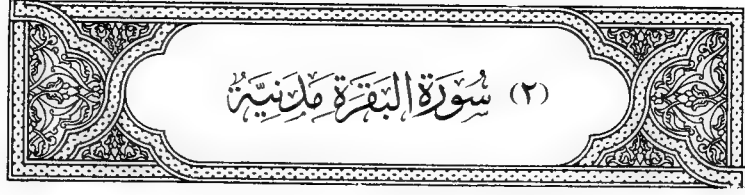 (٢) سُورَةُ البَقَرَةِ مَدَنِيَّةٌ